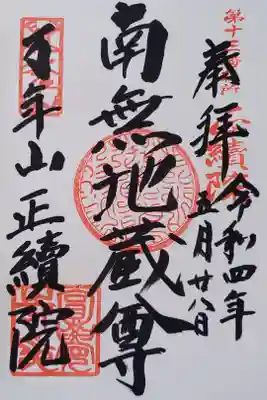 奉拝
令和四年
五月廿八日
南無地蔵尊
万年山正續院